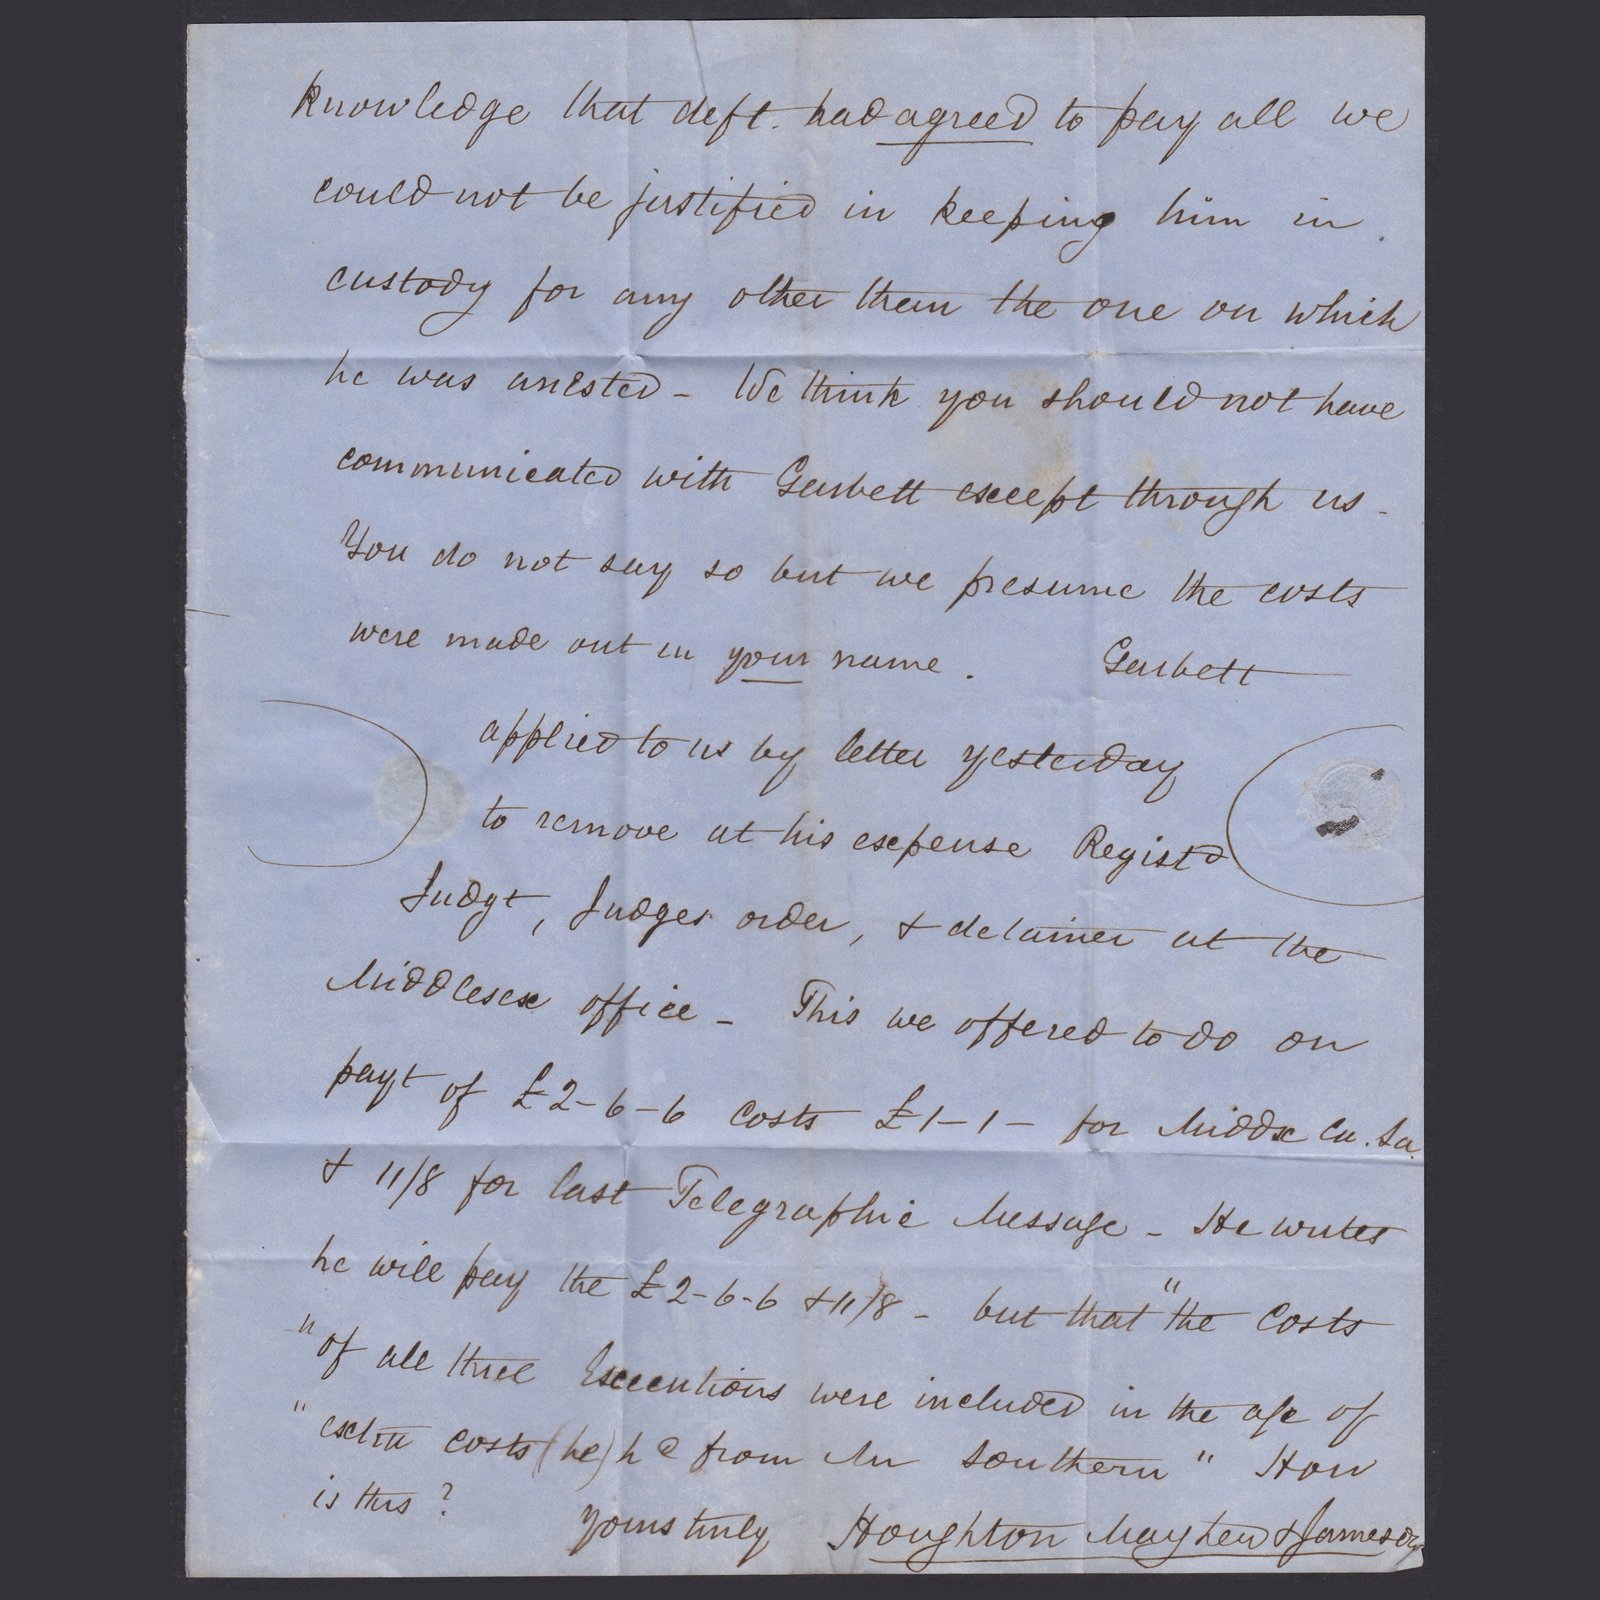 knowledge that deft. had agreed to pay all we
could not be justified in keeping him in
custody for any other than the one on which
he was arrested - We think you should not have
communicated with Garbett except through us -
You do not say so but we presume the costs
were made out in your name. Garbett
applied to us by letter yesterday
to remove at his expense Registd
Judgt, Judges order, & detainer at the
Middlesex office - This we offered to do on
payt of £2-6-6 costs £1-1- for Middx Ca. Sa.
& 11/8 for last Telegraphic Message - He writes
he will pay the £2-6-6 & 11/8 - but that "the Costs
"of all three Executions were included in the a/c of
" costs (he) from Mr Southern" How
is this?
Yours truly Houghton Mayhew & Jameson